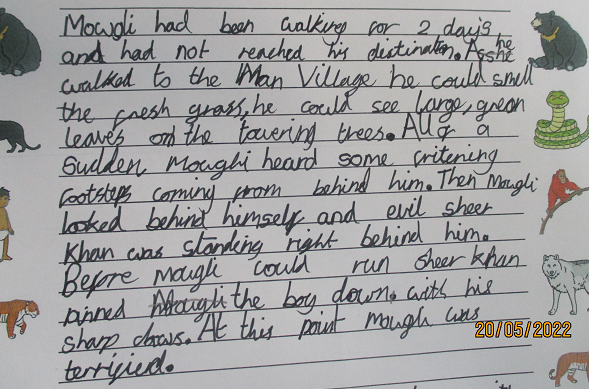 Mowgli had been walking for 2 days
and had not reached his distination. As he
walked to the Man Village he could smell
the fresh grass, he could see large, green
leaves on the towering trees. All of a
sudden Mowghi heard some fritening
footsteps coming from behind him. Then Mowgli
looked behind himself and evil sheer
Khan was standing right behind him.
Before mowgli could run sheer khan
pinned the boy down with his
sharp claws. At this point Mowgli was
terrified.
20/05/2022